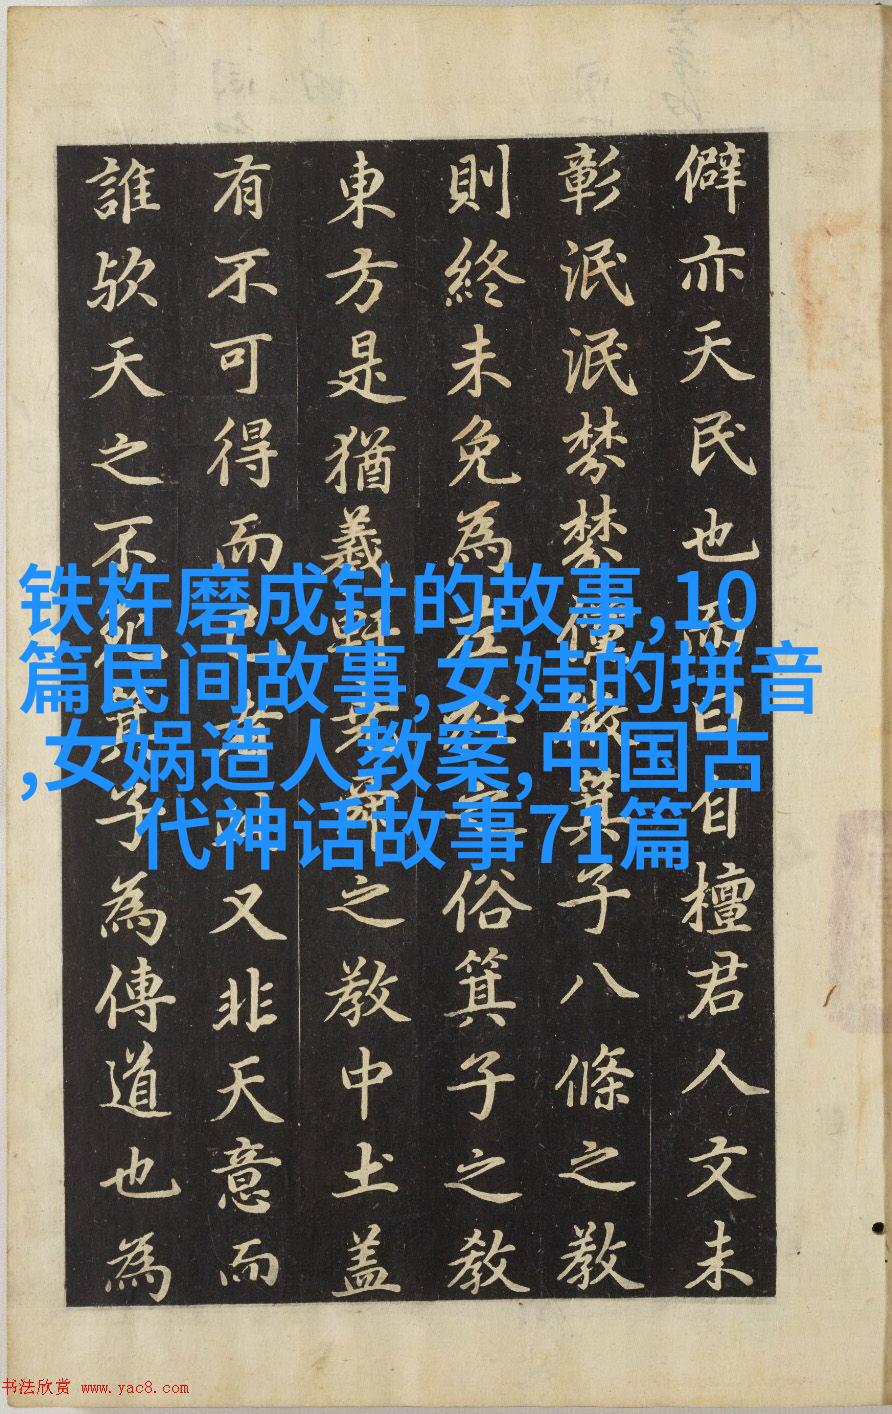 僻亦天民也而曰自檀君人文未
彰泯泯棼棼僅徵箕子八條之教
則終未免為左俗箕子之教
東方是猶羲軒堯舜之教中土蓋
有不可得而已者又非天意而
誰欤天之不箕子為傳道也為
铁杵磨成针的故事,10
篇民间故事,女娃的拼音
,女娲造人教案,中国古
代神话故事71篇
书法欣赏 www.yac8.com